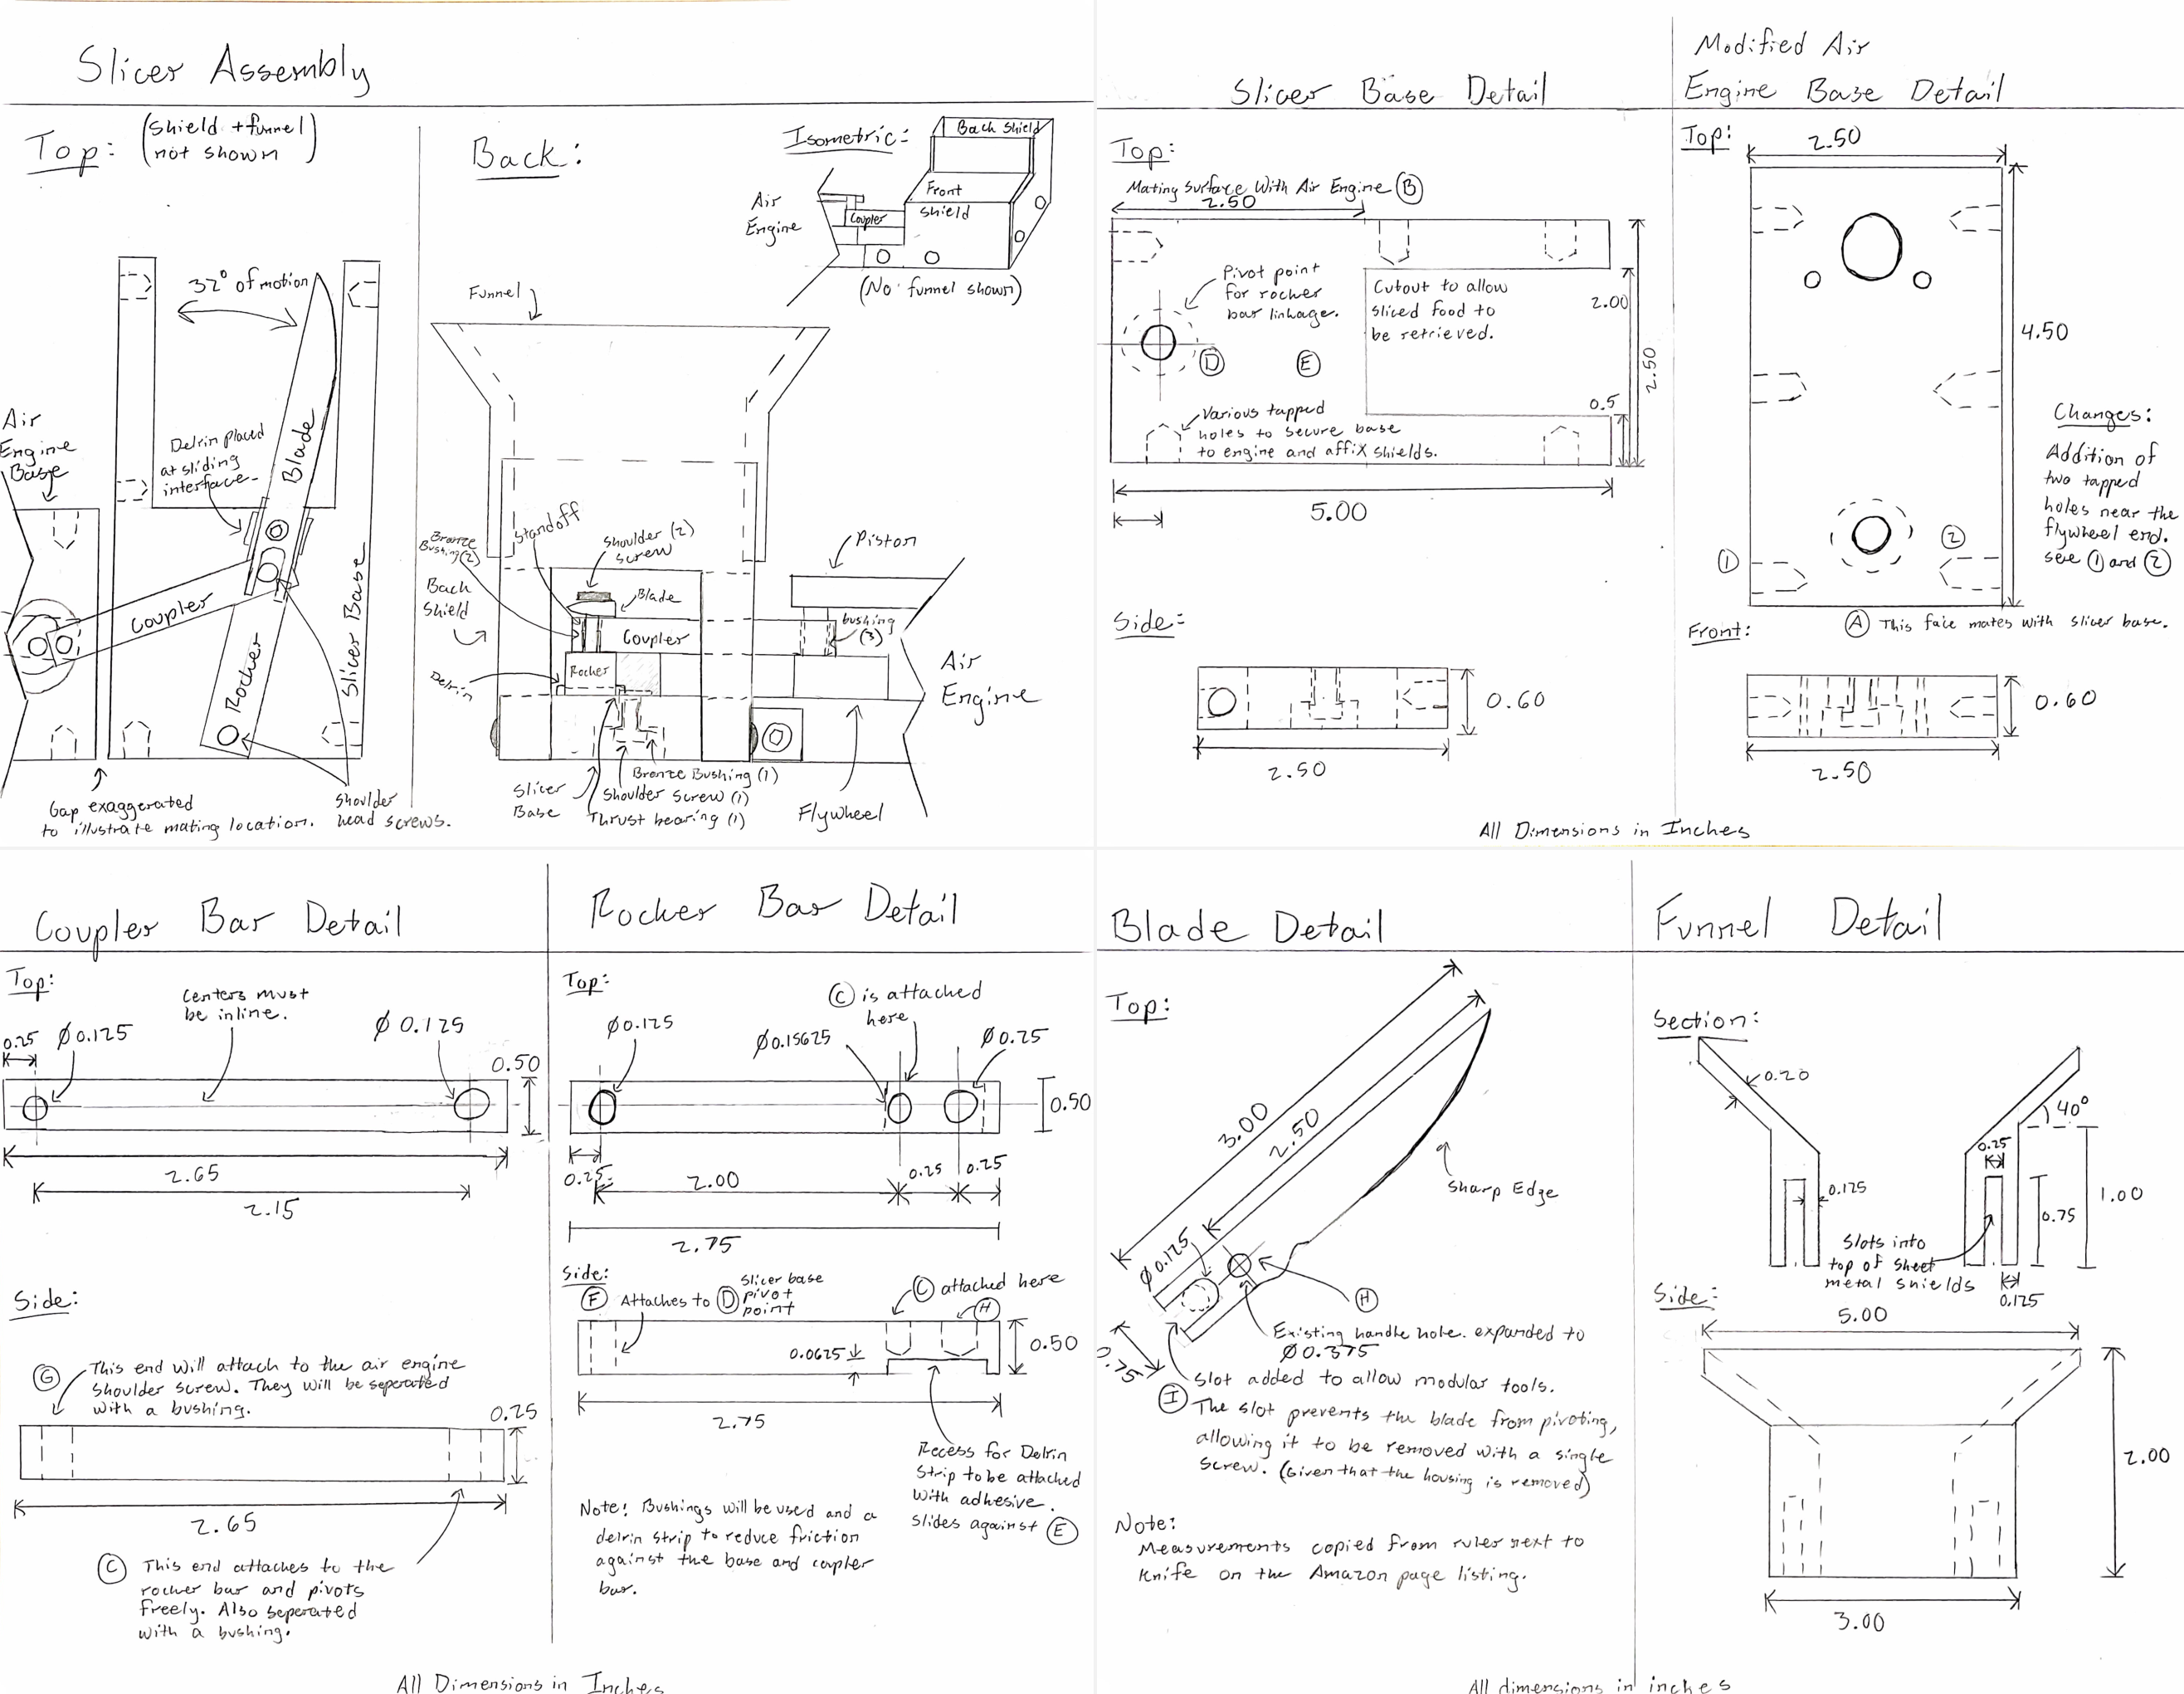 Slicer Assembly
Top:
(shield + funnel)
(not shown)
32° of motion
Air
Engine
Base
Delrin placed
at sliding
interface.
Blade
Coupler
Rocker
Slicer Base
Gap exaggerated
to illustrate mating location.
Shoulder
head screws.
Back:
Isometric:
Back Shield
Front
Shield
Air
Engine
Coupler
(No funnel shown)
Funnel
Bronze
Bushing(2)
Standoff
Shoulder (2)
screw
Piston
Back
Shield
Blade
bushing
(3)
Coupler
Rocker
Delrin
Air
Engine
Slicer
Base
Bronze Bushing (1)
Shoulder Screw (1)
Thrust bearing (1)
Flywheel
Slicer Base Detail
Top:
Mating Surface With Air Engine (B)
2.50
Pivot point
for rocker
bar linkage.
Cutout to allow
sliced food to
be retrieved.
2.00
2.50
D
E
0.5
Various tapped
holes to secure base
to engine and affix shields.
5.00
Side:
0.60
2.50
Modified Air
Engine Base Detail
Top:
2.50
4.50
Changes:
Addition of
two tapped
holes near the
flywheel end.
see (1) and (2)
1
2
(A) This face mates with slicer base.
Front:
0.60
2.50
All Dimensions in Inches
Coupler Bar Detail
Top:
Centers must
be inline.
0.25
Ø0.125
Ø0.125
0.50
2.65
2.15
Side:
(G) This end will attach to the air engine
shoulder screw. They will be seperated
with a bushing.
0.25
2.65
(C) This end attaches to the
rocker bar and pivots
freely. Also seperated
with a bushing.
Rocker Bar Detail
Top:
(C) is attached
here
Ø0.125
Ø0.15625
Ø0.25
0.50
0.25
2.00
0.25
0.25
2.75
Side:
(F) Attaches to (D) Slicer base
pivot
point
(C) attached here
H
0.0625
0.50
2.75
Recess for Delrin
Strip to be attached
with adhesive.
slides against (E)
Note! Bushings will be used and a
delrin strip to reduce friction
against the base and coupler
bar.
All Dimensions in Inches
Blade Detail
Top:
3.00
2.50
Sharp Edge
Ø0.125
H
0.75
Existing handle hole. expanded to
Ø0.375
Slot added to allow modular tools.
(I) The slot prevents the blade from pivoting,
allowing it to be removed with a single
screw. (Given that the housing is removed)
Note:
Measurements copied from ruler next to
knife on the Amazon page listing.
Funnel Detail
Section:
0.20
40°
0.25
0.125
0.75
1.00
Slots into
top of sheet
metal shields
0.125
Side:
5.00
2.00
3.00
All dimensions in inches